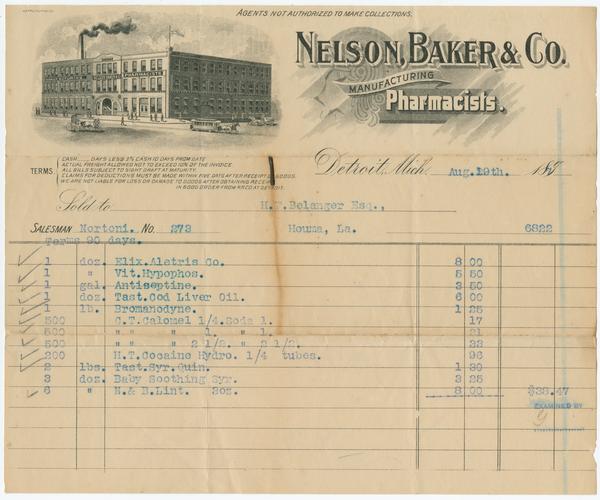 AGENTS NOT AUTHORIZED TO MAKE COLLECTIONS.
NELSON, BAKER & CO.
MANUFACTURING
Pharmacists.
TERMS
CASH DAYS LESS 2% CASH 10 DAYS FROM DATE
ACTUAL FREIGHT ALLOWED NOT TO EXCEED 10% OF THE INVOICE.
ALL BILLS SUBJECT TO SIGHT DRAFT AT MATURITY.
CLAIMS FOR DEDUCTIONS MUST BE MADE WITHIN FIVE DAYS AFTER RECEIPT OF GOODS.
WE ARE NOT LIABLE FOR LOSS OR DAMAGE TO GOODS AFTER OBTAINING RECEIPT
IN GOOD ORDER FROM R.R.CO. AT DETROIT.
Detroit, Mich. Aug. 19th. 189
Sold to H.T.Belanger Esq.,
SALESMAN Nortoni. No. 273 Houma, La. 6822
Terms 90 days.
1 doz. Elix.Aletris Co. 8 00
1 " Vit.Hypophos. 5 50
1 gal. Antiseptine. 3 50
1 doz. Tast.Cod Liver Oil. 6 00
1 lb. Bromanodyne. 1 25
500 C.T.Calomel 1/4.Soda 1. 17
500 " " 1. " 1. 21
500 " " 2 1/2. " 2 1/2. 33
200 H.T.Cocaine Hydro. 1/4 tubes. 96
2 lbs. Tast.Syr.Quin. 1 30
3 doz. Baby Soothing Syr. 3 25
6 " N.& B.Lint. 2oz. 8 00 $38.47
EXAMINED BY